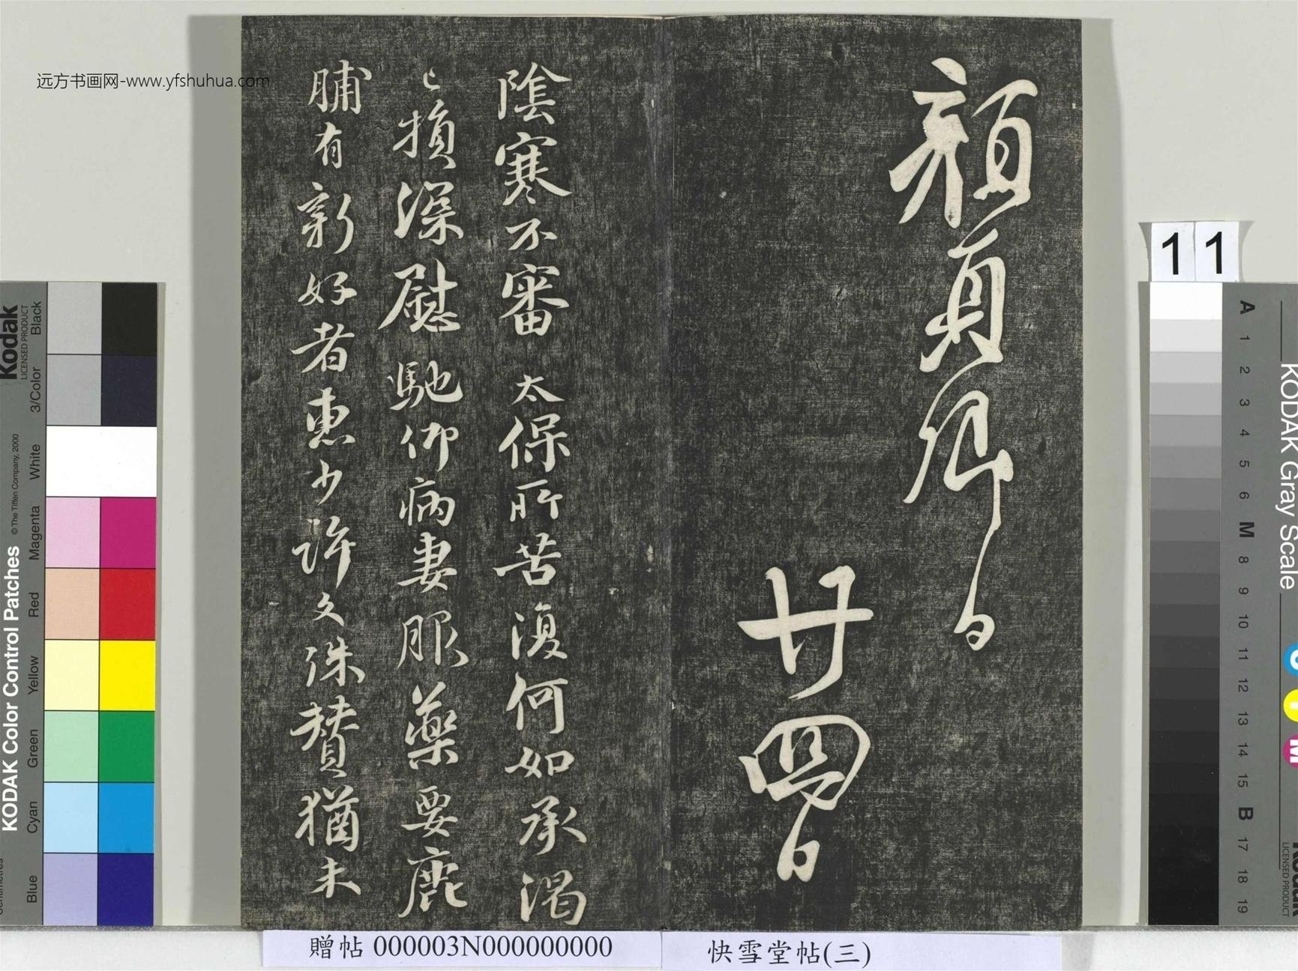 远方书画网-www.yfshuhua.com
顏真卿白
廿四日
陰寒不審太保所苦復何如承渴
已損深慰馳仰病妻服藥要鹿
脯有新好者惠少許文殊賛猶未
贈帖 000003N000000000
快雪堂帖(三)
11
KODAK Color Control Patches
© The Tiffen Company, 2000
Kodak
LICENSED PRODUCT
Blue
Cyan
Green
Yellow
Red
Magenta
White
3/Color
Black
KODAK Gray Scale
A
1
2
3
4
5
6
M
8
9
10
11
12
13
14
15
B
17
18
19
C
Y
M